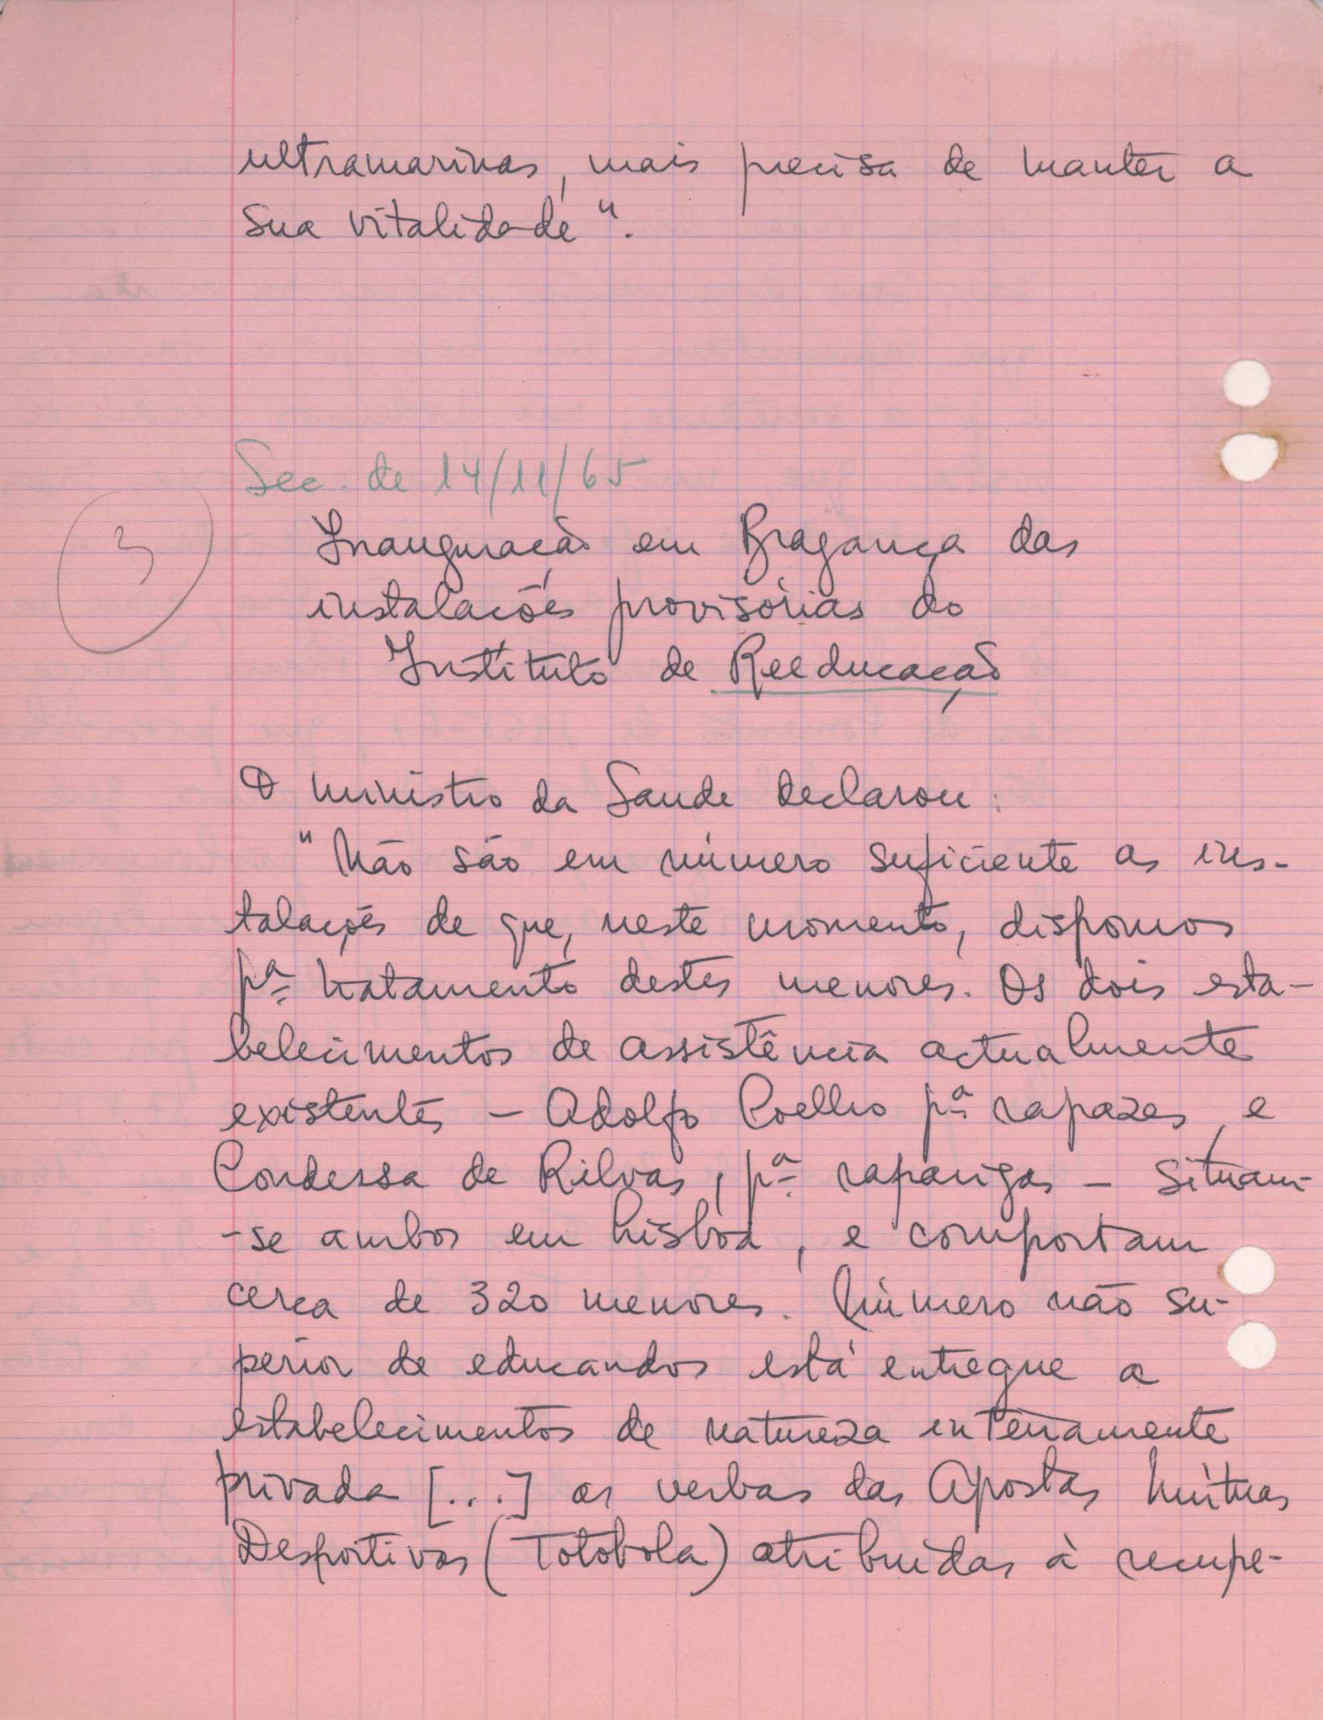 ultramarinas, mais precisa de manter a
sua vitalidade".
Sec. de 14/11/65
3
Inauguração em Bragança das
instalações provisórias do
Instituto de Reeducação
O ministro da Saude declarou:
"Não são em número suficiente as ins-
talações de que, neste momento, dispomos
pª tratamento destes menores. Os dois esta-
belecimentos de assistência actualmente
existentes – Adolfo Coelho pª rapazes, e
Condessa de Rilvas, pª raparigas – situam-
-se ambos em Lisboa, e comportam
cerca de 320 menores. Número não su-
perior de educandos está entregue a
estabelecimentos de natureza inteiramente
privada [...] as verbas das Apostas Mútuas
Desportivas (Totobola) atribuídas à recupe-